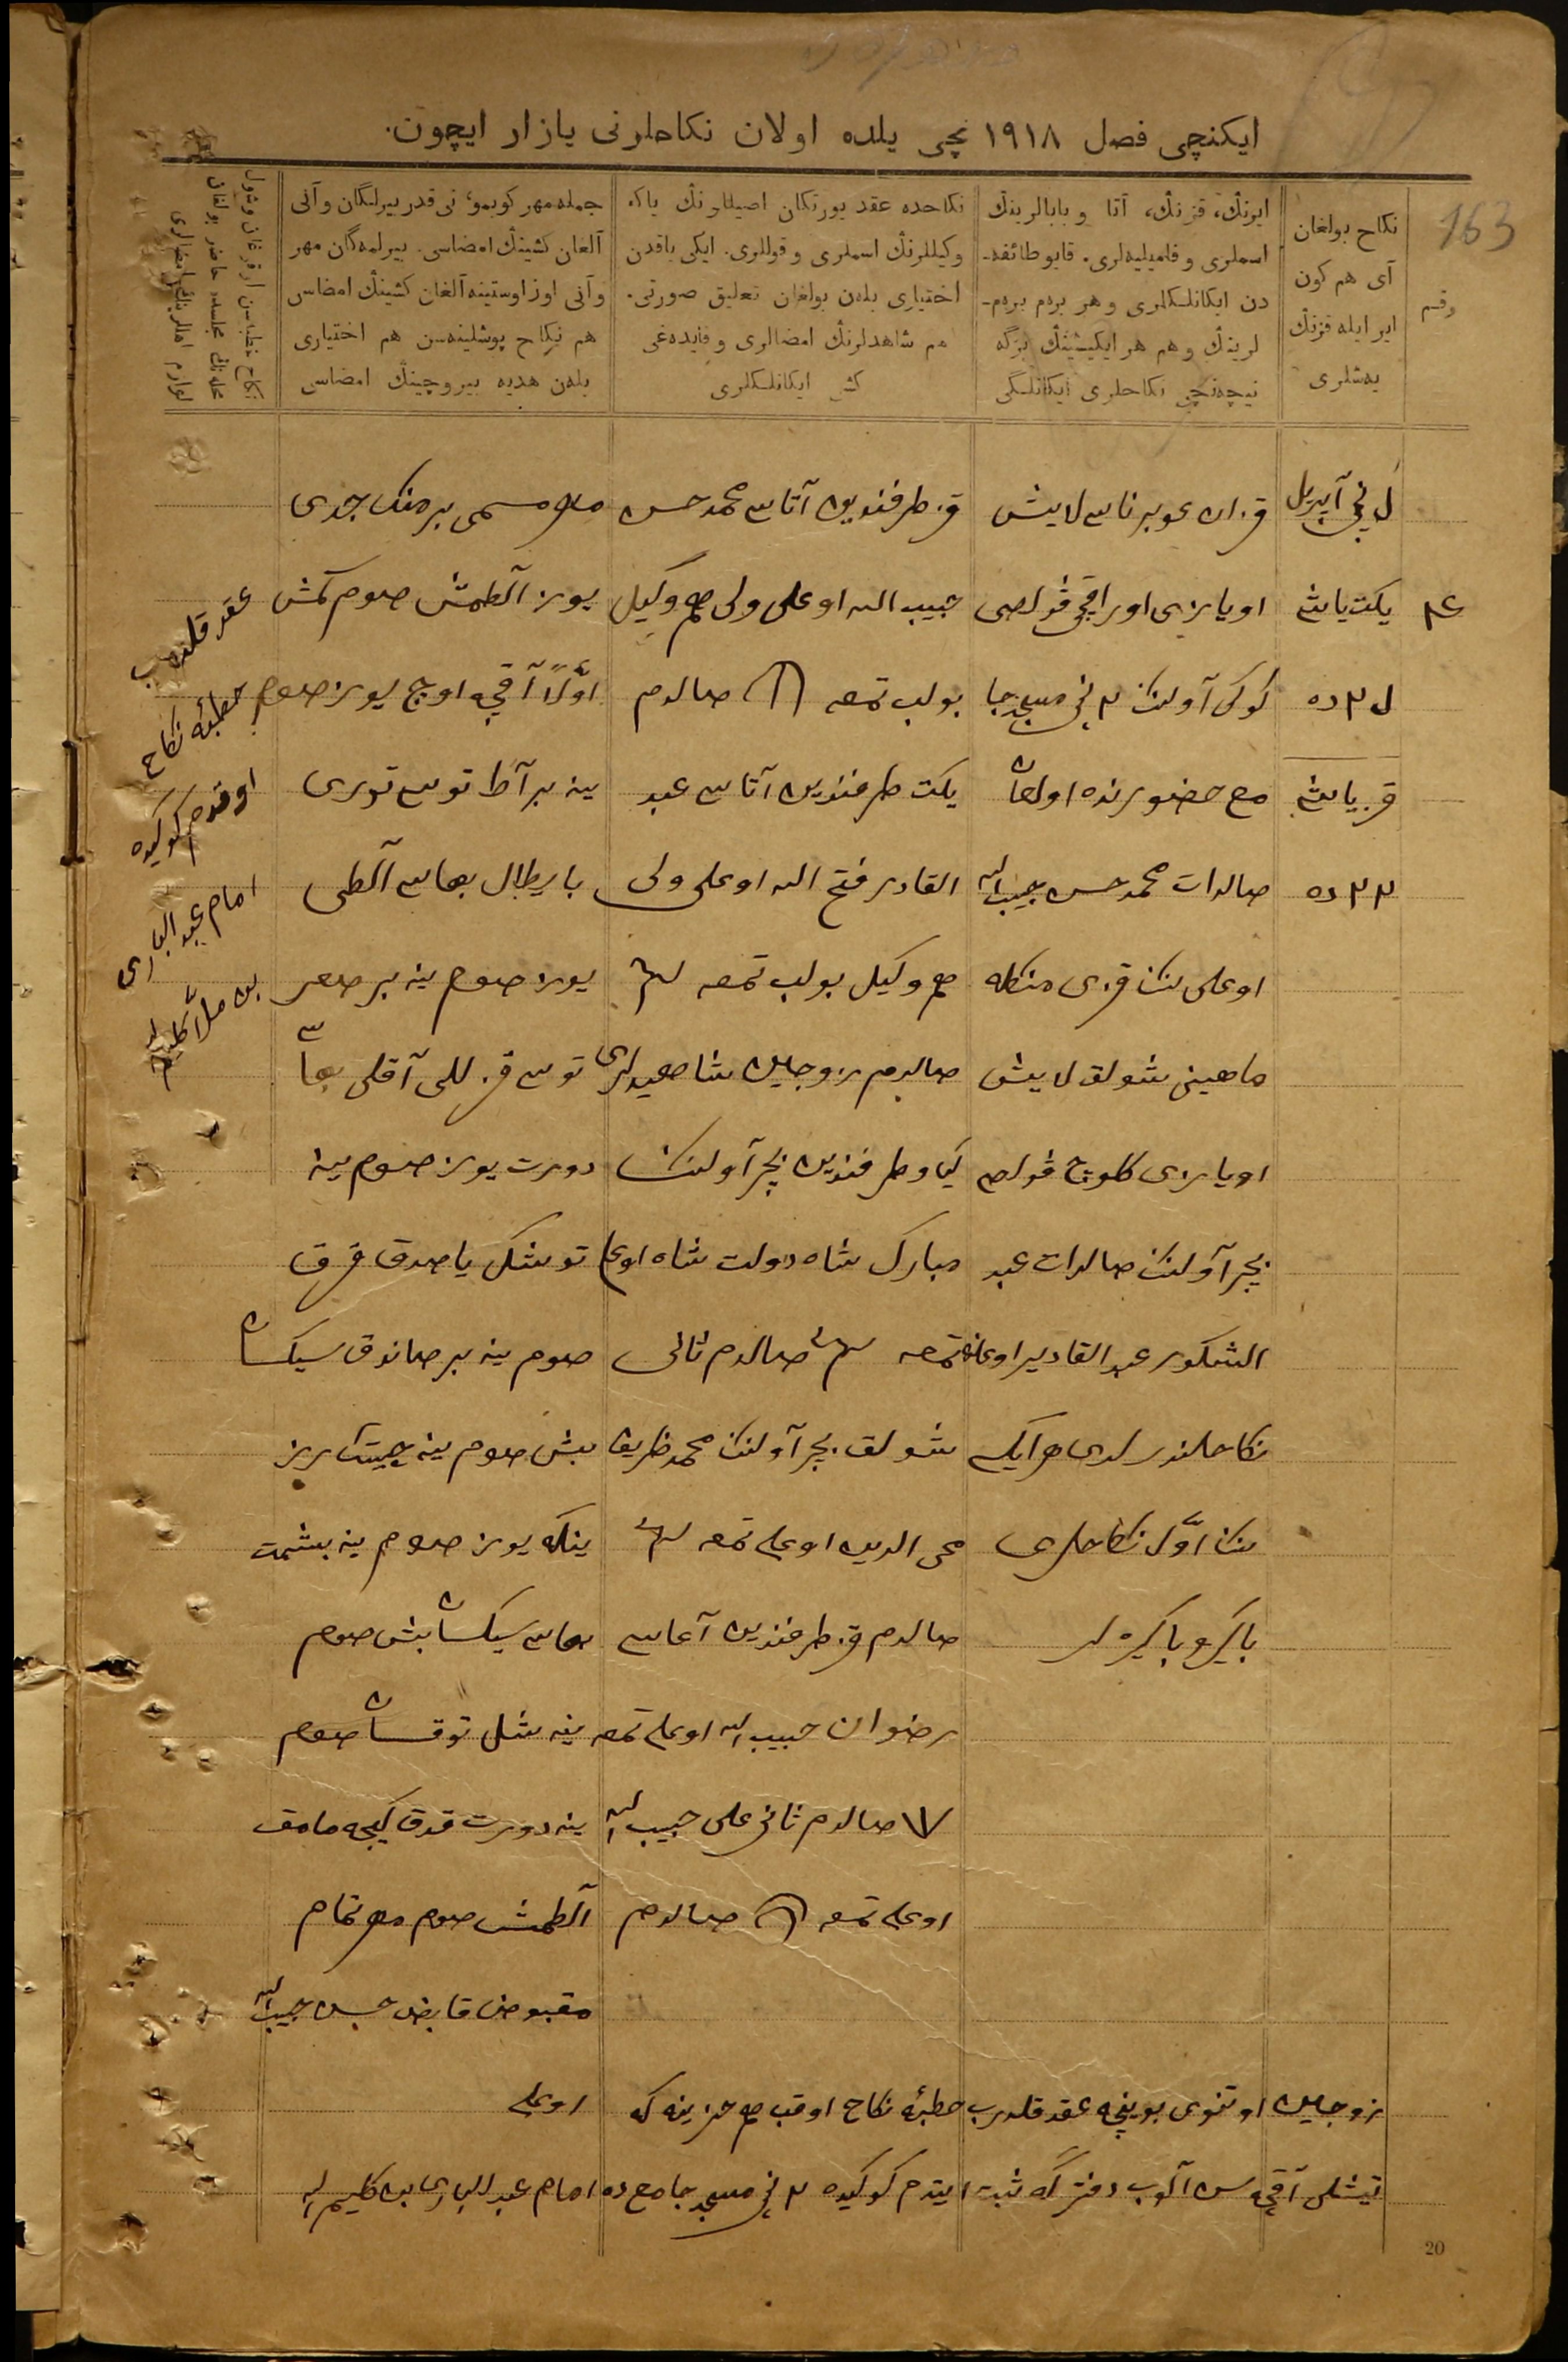 ایکنچی فصل ١٩١٨ نچی یلده اولان نکاحلرنی یازار ایچون.
163
رقم
نکاح بولغان
آی هم کون
ایر ایله قزنڭ
یەشلری
ایرنڭ، قزنڭ، آتا و بابالرینڭ
اسملری و فامیلیەلری. قایو طائفه-
دن ایکانلکلری و هر برەم برەم-
لرینڭ و هم هر ایکیسینڭ بزگه
نیچەنچی نکاحلری ایکانلگی
نکاحده عقد یورتکان اصیللرنڭ یاکه
وکیللرنڭ اسملری و قوللری. ایکی یاقدن
اختیاری بلەن بولغان تعلیق صورتی.
هم شاهدلرنڭ امضالری و قایدەغی
کشی ایکانلکلری
جمله مهر کوبمۇ، نی قدر بیرلگان وآنی
آلغان کشینڭ امضاسی. بیرلمەگان مهر
وآنی اوز اوستینه آلغان کشینڭ امضاسی
هم نکاح پوشلینەسن هم اختیاری
بلەن هدیه بیروچینڭ امضاسی
نکاح خطبەسن اوقوغان وشول
محلەنڭ مجلسده حاضر بولغان
امضالری
نچی آپریل
یکت یاشی
ده
قز یاشی
٢٢ ده
قزان غوبرناسی لایش
اویازی اوراقچی ڤولصی
کوکی آولنڭ ٢ نچی مسجد جا
مع حضورنده اولغان
صالدات محمد حسن حبیب الله
اوغلی ننڭ قزی منکله
ماهینی شولق لایش
اویازی کلوچ ڤولصی
آولنڭ صالدات عبد
الشکور عبد القادیر اوغلینه
نکاحلندرلدی هر ایکی
سننڭ اوّل نکاحلری
باکر و باکیره لر
قز طرفندین آتاسی محمد حسن
حبیب الله اوغلی ولی هم وکیل
بولب تمغه صالدم
یکت طرفندین آتاسی عبد
القادر فتح الله اوغلی ولی
هم وکیل بولب تمغه
صالدم زوجاین شاهیدلری
کیاو طرفندین آولننڭ
مبارک شاه دولت شاه اوغلی
تمغه صالدم ثانی
شولق آولننڭ محمد ظریف
محی الدین اوغلی تمغه
صالدم قز طرفندین آغاسی
رضوان حبیب الله اوغلی تمغه
صالدم ثانی علی حبیب الله
اوغلی تمغه صالدم
مهر مسمی بر منڭ جدی
یوز آلطمش صوم کمش
اوّلاً آقچه اوچ یوز صوم
ینه بر آط توسی توری
یا ریطال بهاسی آلطی
یوز صوم ینه بر صغر
توسی قزللی آقلی بها
دورت یوز صوم ینه
توشک یاصدق قرق
صوم ینه بر صاندوق سیکسان
بش صوم ینه چیتک
ینکه یوز صوم ینه بشمت
بهاسی سیکسان بش صوم
ینه شل توقسان صوم
ینه دورت قدق کیجه مامق
آلطمش صوم مهر تمام
مقبوض قابض حسن حبیب الله
اوغلی
عقد قلدرب
خطبۀ نکاح
اوقدم کوکیده
امام عبد الباری
بن ملا کلیم الله
زوجاین اوتنوی بوینچه عقد قلدرب خطبۀ نکاح اوقب هم خزینه که
تیشلی آقچه سن آلوب دفترگه ثبت ایتدم کوکیده ٢ نچی مسجد جامع ده امام عبد الباری بن کلیم الله
20